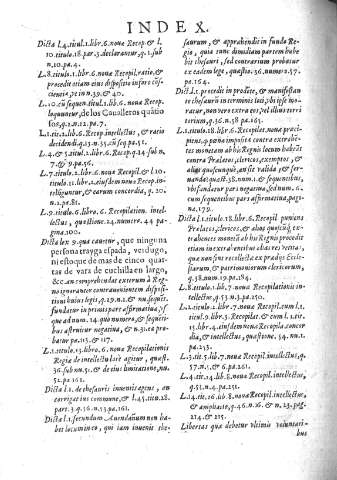 INDEX.
Dicta l.4. titul.1. libr.6. nouæ Recop. & l.
10. titulo.18. par.3. declarantur, q.1. sub
n.10. pa.4.
L.8. titulo.1. libr.6. nouæ Recopil. ratio, &
procedit etiam eius dispositio in foro cōs-
ciētiæ, vt in n.39. & 40.
L.10. cū sequen. titul.1. libr.6. nouæ Recop.
loquuntur, de los Caualleros quātio
sos, q.2. n.12. pa.7.
L.1. titu.2. libr.6. Recop. intellectus, & ratio
decidendi. q.13. n.35. cū seq. pa.51.
L.4. & 5. titul.2. libr.6. nouæ Recop. q.24. sub n.
7. & 9. pa.56.
L.7. titulo.2. libro.6. nouæ Recopil. & l.10
titulo.1. libr.2. eiusdem nouæ Recop. in-
telliguntur, & earum concordia, q.20.
n.2. pa.81.
L.9. titulo.6. libro.6. Recopilation. intel-
lectus, quæstione.24. numero.44 pa-
gina.100.
Dicta lex 9. qua cauetur, que ninguna
persona trayga espada, verdugo,
ni estoque de mas de cinco quar-
tas de vara de cuchilla en largo,
&c. an comprehendat exterum à Reg-
no ignorantem contrauenientem dispositi
onibus huius legis, q.29. n.1. & nu. sequēt.
fundatur in primis pars affirmatiua, & us
que ad num.14. quo numero, & sequēti-
bus astruitur negatiua, & n.31. eā pro-
bat pa.113. & 117.
L.1. titulo.13. libro.6. nouæ Recopilationis
Regiæ de intellectu ls it agitur, quæst.
36. sub nu.5. & de eius limitatione, nu.
52. pa.162.
Dicta l.1. de thesauris inuentis agens, an
corrigat ius commune, & l.45. titu.28.
part.3. q.36. n.53. pa.161.
Dicta l.1. secundum Auendañum non ha-
bet locum in eo, qui iam inuenit the-
saurum, & apprehendit in fundo Re-
gis, quia tunc dimidiam partem habe-
bit thesauri, sed contrarium probatur
ex eadem lege, quæstio.36. numero.57.
pa.164.
Dict. l.1. procedit in prodente, & manifestan-
te thesaurū in terminis loci, vbi ipse mo-
ratur, non vero extra eos, vel illius terri-
torium, q.36. n.58 pa.163.
L.18. titulo.1. libro.6. Recopilat. nouæ præci-
piens, q̃ pœna imposita contra extrahē-
tes monetam ab his Regnis locum habeāt
contra Prælatos, clericos, exemptos, &
alias quascunquè, an sit valida & ser-
uanda, quæst.38. num.1. & sequentibus,
vbi fundatur pars negatiua, sed num.6.
cum sequentibus pars affirmatiua, pagi-
na.179.
Dicta l.1. titulo.18. libr.6. Recopil. puniens
Prælatos, clericos, & alios quoscūq̃ ex-
trahentes monetā ab his Regnis procedit
etiam in extrahentibus aliàs res vetitas,
quæ non sint recollectæ ex prædijs Eccle-
siarum, & patrimoniorum clericorum,
q.38. num.19. pa.184.
L.8. titulo.17. libro.7. nouæ Recopilationis in-
tellectus, q.57. n.3. pa.250.
L.2. titulo.1. libr.7. nouæ Recopil. cum l.1.
titul.9. libr.5. Recopilat. & cum l.1. tit.
15. libr.4. eiusdem nouæ Recopila. concor
dia, & intellectus, quæstione.54. nu.1.
pa.253.
L.3. tit.5. lib.7. nouæ Recopil. intellectus, q.
57. n.5. & 6. pa.261.
L.4. tit.14. lib.8. nouæ Recopil. intellectus,
q.51. n.4. pa.251.
L.14. tit.26. lib.8. nouæ Recopil. intellectus,
& ampliatio, q.46. n.26. & n.23. pagi.
214. & 215.
Libertas quæ debetur vltimis voluntari-
bus